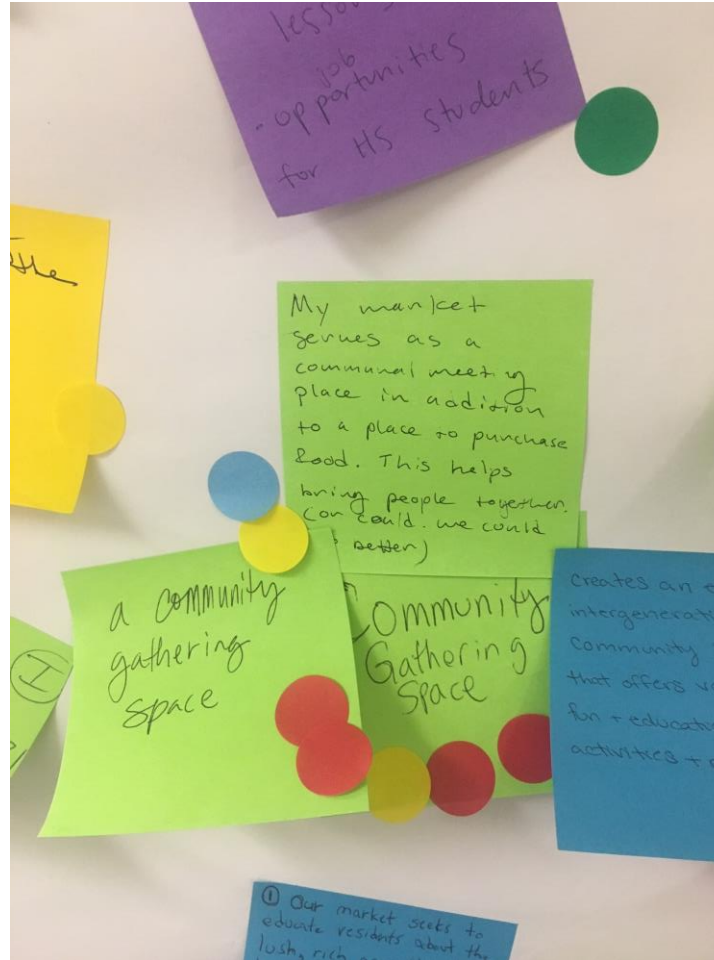 lesson
job
- opportunities
for HS students
the
My market
serves as a
communal meeting
place in addition
to a place to purchase
food. This helps
bring people together.
(or could. we could
better)
a community
gathering
space
Community
Gathering
Space
creates an
intergenerat
community
that offers v
fun + educati
activities +
I
① Our market seeks to
educate residents about the
lush, rich